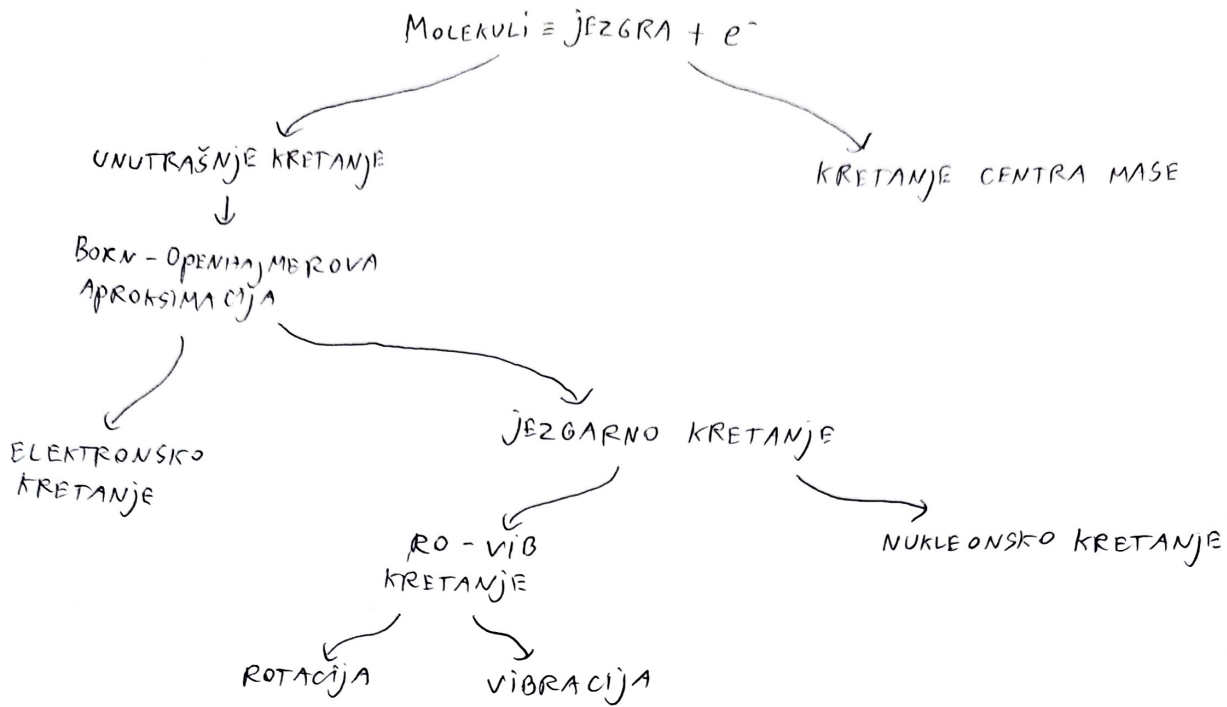 MOLEKULi ≡ jEZGRA + e⁻
UNUTRAŠNjE KRETANjE
KRETANjE CENTRA MASE
BORN - OPENHAjMEROVA
APROKSIMACIjA
jEZGARNO KRETANjE
ELEKTRONSKO
KRETANjE
RO - ViB
KRETANjE
NUKLEONSKO KRETANjE
ROTACIjA
ViBRACIjA